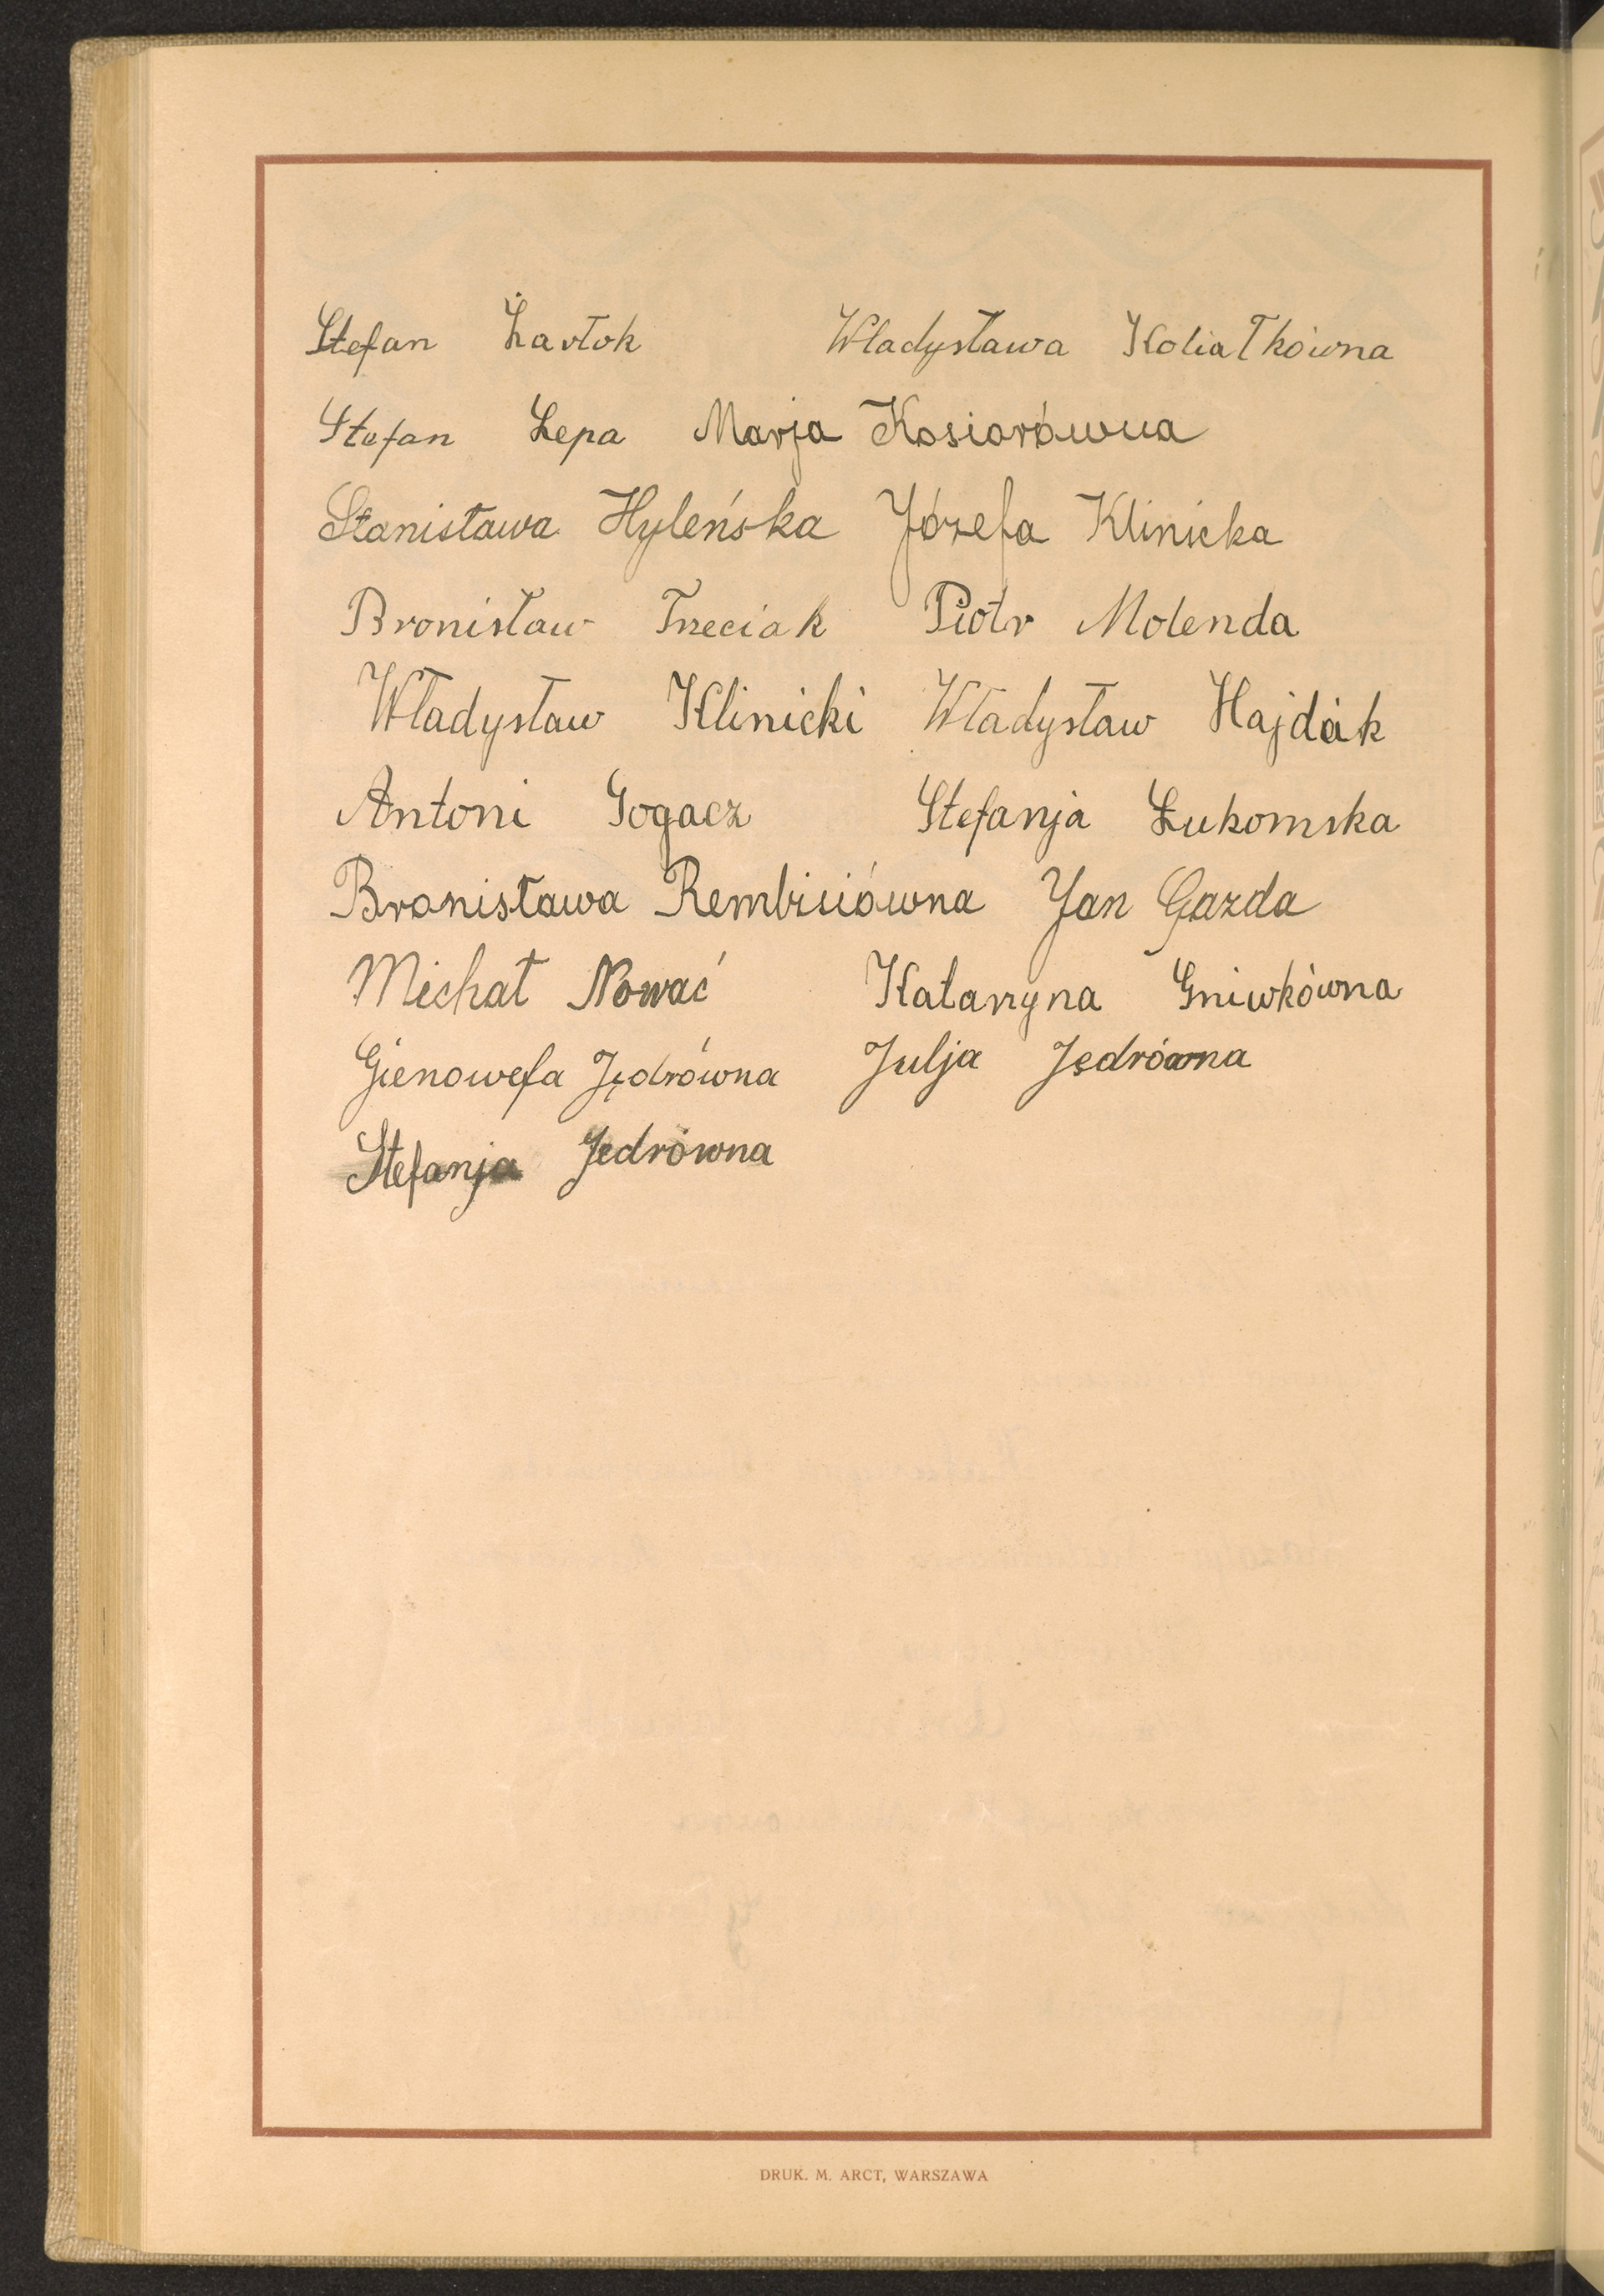 Stefan Żarłok Władysława Kołiałkówna
Stefan Łepa Marja Kosiorówna
Stanisława Hyleńska Józefa Klinicka
Bronisław Trzeciak Piotr Molenda
Władysław Klinicki Władysław Hajdak
Antoni Gogacz Stefanja Łukomska
Bronisława Rembisiówna Jan Gazda
Michał Nować Katarzyna Gniwkówna
Gienowefa Jędrówna Julja Jędrówna
Stefanja Jedrówna
DRUK. M. ARCT, WARSZAWA